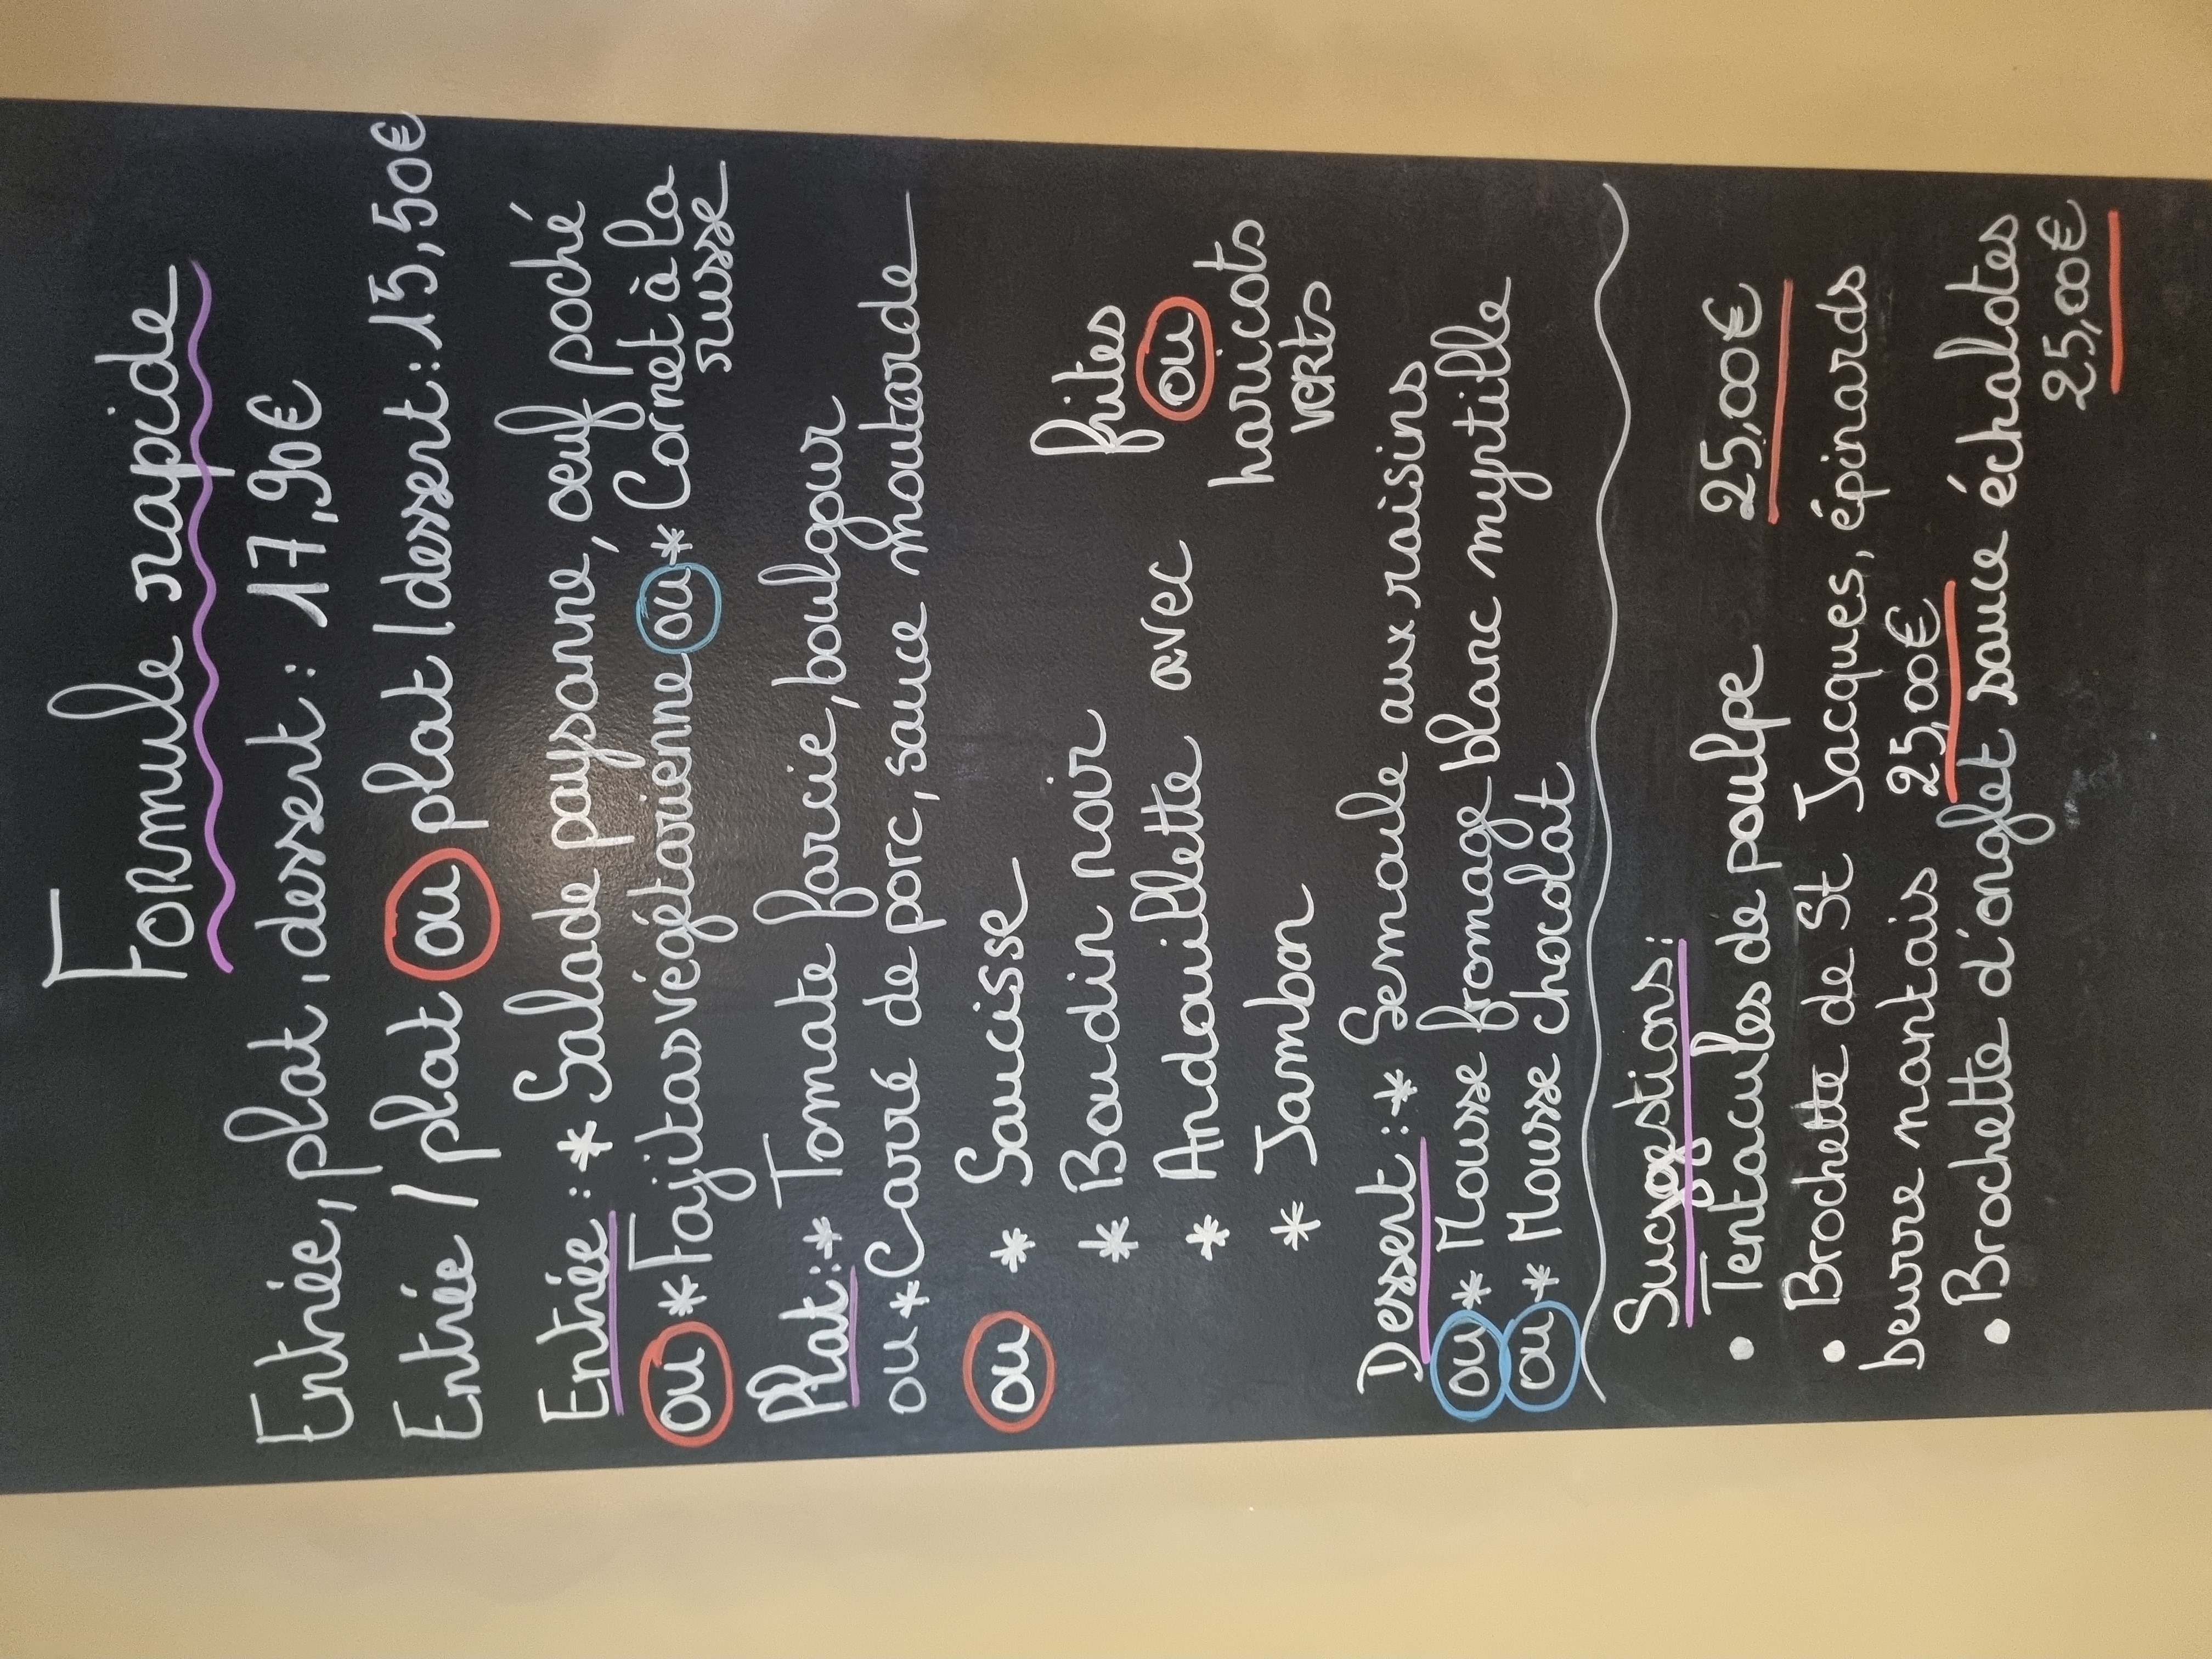 Formule rapide
Entrée, plat, dessert : 17,90€
Entrée / plat ou plat / dessert : 15,50€
Entrée : * Salade paysanne, oeuf poché
ou * Fajitas végétarienne ou * Cornet à la
russe
Plat : * Tomate farcie, boulgour
ou * Carré de porc, sauce moutarde
ou * Saucisse
* Boudin noir
* Andouillette
* Jambon
avec
frites
ou
haricots
verts
Dessert : * Semoule aux raisins
ou * Mousse fromage blanc myrtille
ou * Mousse chocolat
Suggestions :
• Tentacules de poulpe 25,00€
• Brochette de St Jacques, épinards
beurre nantais 25,00€
• Brochette d'onglet sauce échalotes
25,00€